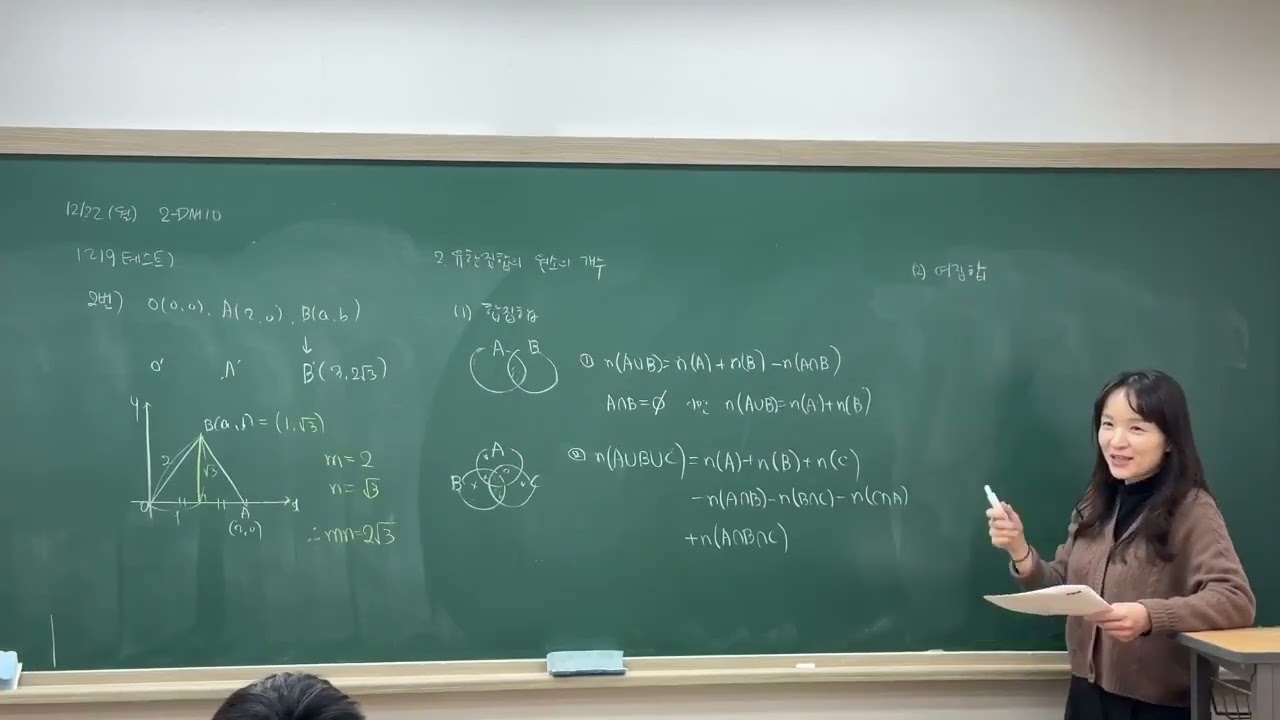 12/22 (월) 2-DM10
1219 테스트)
2번) O(0,0), A(2,0), B(a,b)
↓
O' A' B'(3,2√3)
y
B(a,b) = (1,√3)
2 √3
O 1 A x
(2,0)
m=2
n=√3
∴mn=2√3
2. 유한집합의 원소의 개수
(1) 합집합
A B
① n(A∪B)=n(A)+n(B)-n(A∩B)
A∩B=∅ 이면 n(A∪B)=n(A)+n(B)
A
B C
② n(A∪B∪C)=n(A)+n(B)+n(C)
-n(A∩B)-n(B∩C)-n(C∩A)
+n(A∩B∩C)
(2) 여집합